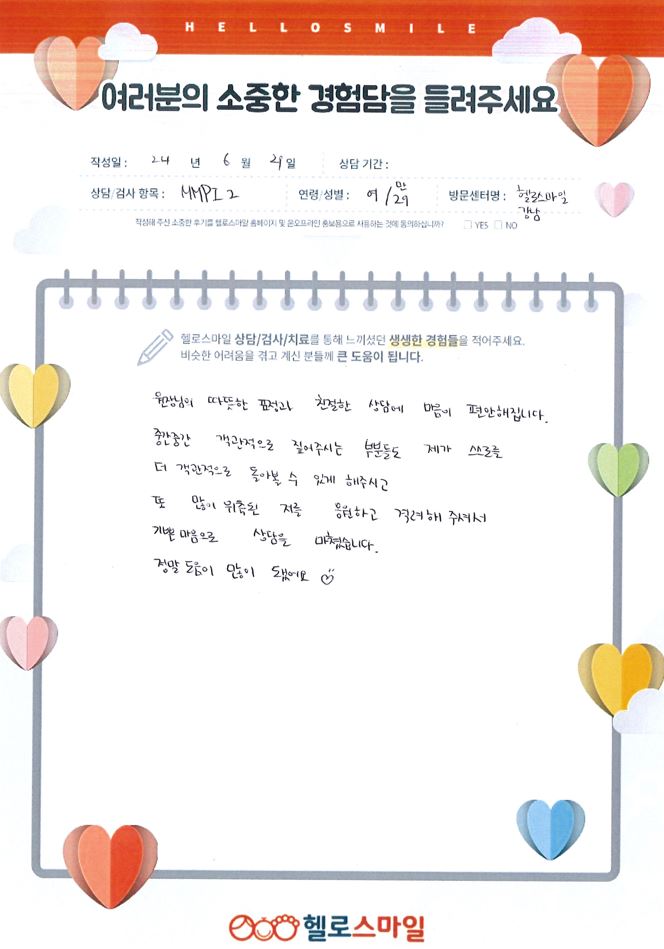 HELLOSMILE
여러분의 소중한 경험담을 들려주세요
작성일 : 24 년 6 월 29 일 상담 기간 :
상담/검사 항목 : MMPI 2 연령/성별 : 여 / 만 29 방문센터명 : 헬로스마일 강남
작성해 주신 소중한 후기를 헬로스마일 홈페이지 및 온오프라인 홍보용으로 사용하는 것에 동의하십니까? YES NO
헬로스마일 상담/검사/치료를 통해 느끼셨던 생생한 경험들을 적어주세요.
비슷한 어려움을 겪고 계신 분들께 큰 도움이 됩니다.
원장님의 따뜻한 표정과 친절한 상담에 마음이 편안해집니다.
중간중간 객관적으로 짚어주시는 부분들도 제가 스스로를
더 객관적으로 돌아볼 수 있게 해주시고
또 많이 위축된 저를 응원하고 격려해 주셔서
기쁜 마음으로 상담을 마쳤습니다.
정말 도움이 많이 됐어요
헬로스마일